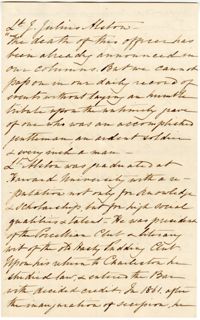 Lt. J. Julius Alston
"The death of this officer has
been already announced in
our columns. But we cannot
pass on in our daily record of
events without laying an humble
tribute upon the untimely grave
of one who was an accomplished
gentleman an ardent soldier
a very rich man —
Lt. Alston was graduated at
Harvard University with a re-
putation not only for knowledge
& scholarship, but for high social
qualities & talent — He was president
of the Porcellian Club a literary
not of the Hasty Pudding Club
Upon his return to Charleston he
studied law & entered the Bar
with decided credit. In 1861, after
the inauguration of secession, he